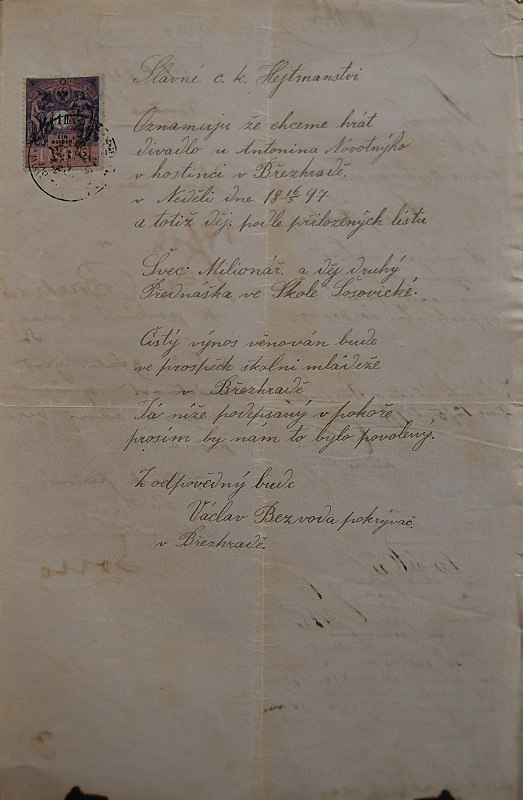 Slavné c. k. Hejtmanství
Oznamuju že chceme hrát
divadlo u Antonina Novotnýho
v hostinci v Březhradě.
v Neděli dne 18 16/5 97
a totiž děj. podle přiložených listu
Švec Milionář. a děj druhý
Přednáška ve Škole Šošovické.
Čistý výnos věnován bude
ve prospěch školni mládeže
v Březhradě
Já níže podepsaný v pokoře
prosím by nám to bylo povolený.
Zodpovědný bude
Václav Bezvoda pokrývač.
v Březhradě.